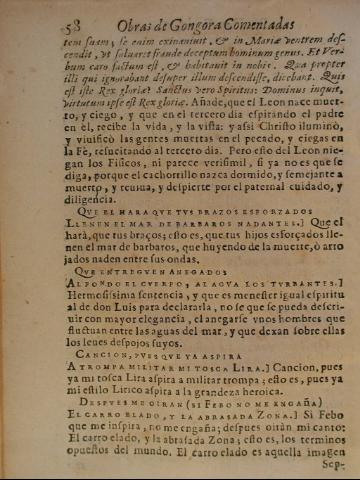 58 Obras de Gongora Comentadas
tem suam; se enim exinanivit, & in Mariæ ventrem des-
cendit, vt saluaret fraude deceptum hominem genus. Et Ver-
bum caro factum est, & habitauit in nobis. Qua propter
illi qui ignorabant desuper illum descendisse, dicebant. Quis
est iste Rex gloriæ? Sanctus vero Spiritus: Dominus inquit,
virtutum ipse est Rex gloriæ. Añade, que el Leon nace muer-
to, y ciego, y que en el tercero dia espirando el padre
en èl, recibe la vida, y la vista: y assi Christo iluminò,
y viuificò las gentes muertas en el pecado, y ciegas en
la Fè, resucitando al tercero dia. Pero esto del Leon nie-
gan los Fisicos, ni parece verisimil, si ya no es que se
diga, porque el cachorrillo nazca dormido, y semejante a
muerto, y reuiua, y despierte por el paternal cuidado, y
diligencia.
QVE EL HARA QVE TVS BRAZOS ESFORZADOS
LLENEN EL MAR DE BARBAROS NADANTES.] Que el
harà, que tus braços; esto es, que tus hijos esforçados lle-
nen el mar de barbaros, que huyendo de la muerte, ò arro
jados naden entre sus ondas.
QVE ENTREGVEN ANEGADOS
AL FONDO EL CVERPO, AL AGVA LOS TVRBANTES.]
Hermosissima sentencia, y que es menester igual espiritu
al de don Luis para declararla, no se que se pueda descri-
uir con mayor elegancia, el anegarse vnos hombres que
fluctuan entre las aguas del mar, y que dexan sobre ellas
los leues despojos suyos.
CANCION, PVES QVE YA ASPIRA
A TROMPA MILITAR MI TOSCA LIRA.] Cancion, pues
ya mi tosca Lira aspira a militar trompa; esto es, pues ya
mi estilo Lirico aspira a la grandeza heroica.
DESPVES ME OIRAN (SI FEBO NO ME ENGAñA)
EL CARRO ELADO, Y LA ABRASADA ZONA.] Si Febo
que me inspira, no me engaña; despues oiràn mi canto:
El carro elado, y la abrasada Zona; esto es, los terminos
opuestos del mundo. El carro elado es aquella imagen
Sep-